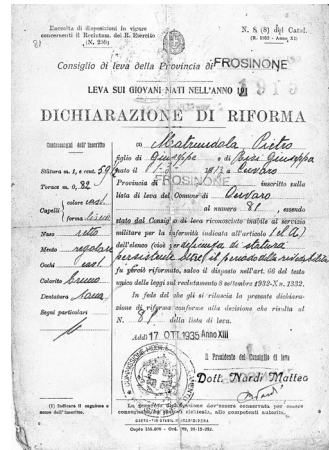 Raccolta di disposizioni in vigore
concernenti il Reclutam. del R. Esercito
(N. 250)
N. 8 (8) del Catal.
(R. 1933 - Anno XI)
Consiglio di leva della Provincia di FROSINONE
LEVA SUI GIOVANI NATI NELL'ANNO 191
1915
DICHIARAZIONE DI RIFORMA
Contrassegni dell'inscritto
Statura m. 1, cent.
Torace m. 0, 82
Capelli
colore cast.
forma lisci
Naso retto
Mento regolare
Occhi cast.
Colorito bruno
Dentatura sana
Segni particolari
(1) Matrundola Pietro
figlio di Giuseppe e Giuseppa
nato il
Provincia di FROSINONE inscritto sulla
lista di leva del Comune di
al numero 81, essendo
stato dal Consiglio di leva riconosciuto inabile al servizio
militare per la infermità indicata all'articolo
dell'elenco (cioè) per deficenza di statura
persistente oltre il periodo della rivedibilità
fu perciò riformato, salvo il disposto nell'art. 66 del testo
unico delle leggi sul reclutamento 8 settembre 1932-X n. 1332.
In fede del che gli si rilascia la presente dichiara-
zione di riforma conforme alla decisione che risulta al
N. 81 della lista di leva.
Addì 17 OTT. 1935 Anno XIII
Il Presidente del Consiglio di leva
Dott. Nardi Matteo
(1) Indicare il cognome e
nome dell'inscritto.
La presente dichiarazione dev'essere conservata per essere